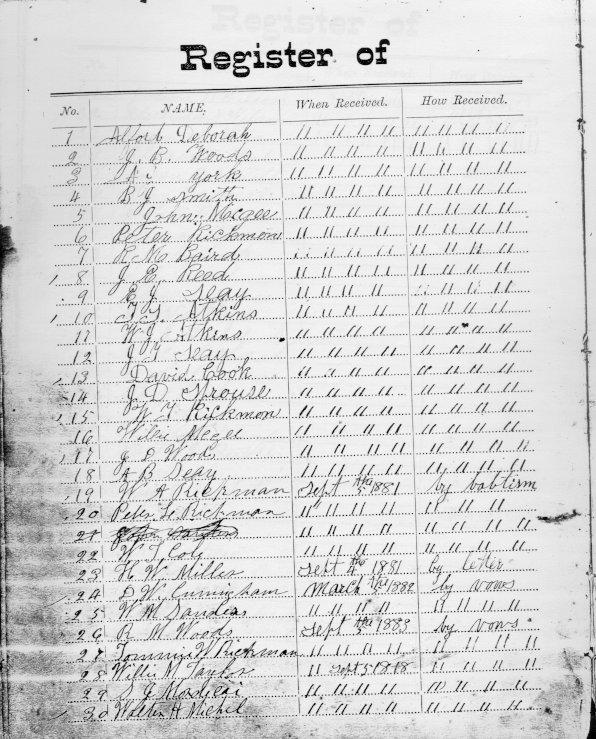 Register of
No. NAME. When Received. How Received.
1 Deborah " " " " " " " "
2 J. B. Woods " " " " " " " "
3 York " " " " " " " "
4 B J Smith " " " " " " " "
5 John Mcgee " " " " " " " "
6 Peter Rickmon " " " " " " " "
7 Baird " " " " " " " "
8 J. E. Reed " " " " " " " "
9 E J Seay " " " " " " " "
10 Atkins " " " " " " " "
11 W J Atkins " " " " " " " "
12 Seay " " " " " " " "
13 David Cook " " " " " " " "
14 J. D. Sprouse " " " " " " " "
15 W T Rickmon " " " " " " " "
16 Willie Mcgee " " " " " " " "
17 J D Woods " " " " " " " "
18 A B Seay " " " " " " " "
19 W A Rickman Sept 1881 by babtism
20 Peter Rickman " " " " " " " "
21 " " " " " " " "
22 W T " " " " " " " "
23 H W Miller Sept 1881 by letter
24 D W Cuningham March 1882 by vows
25 W M " " " " " " " "
26 R M Woods Sept 1883 by vows
27 Tommie Rickman " " " " " " " "
28 Willie M Taylor " Sept 5 " " " "
29 S J " " " " " " " "
30 Walter H Michel " " " " " " " "